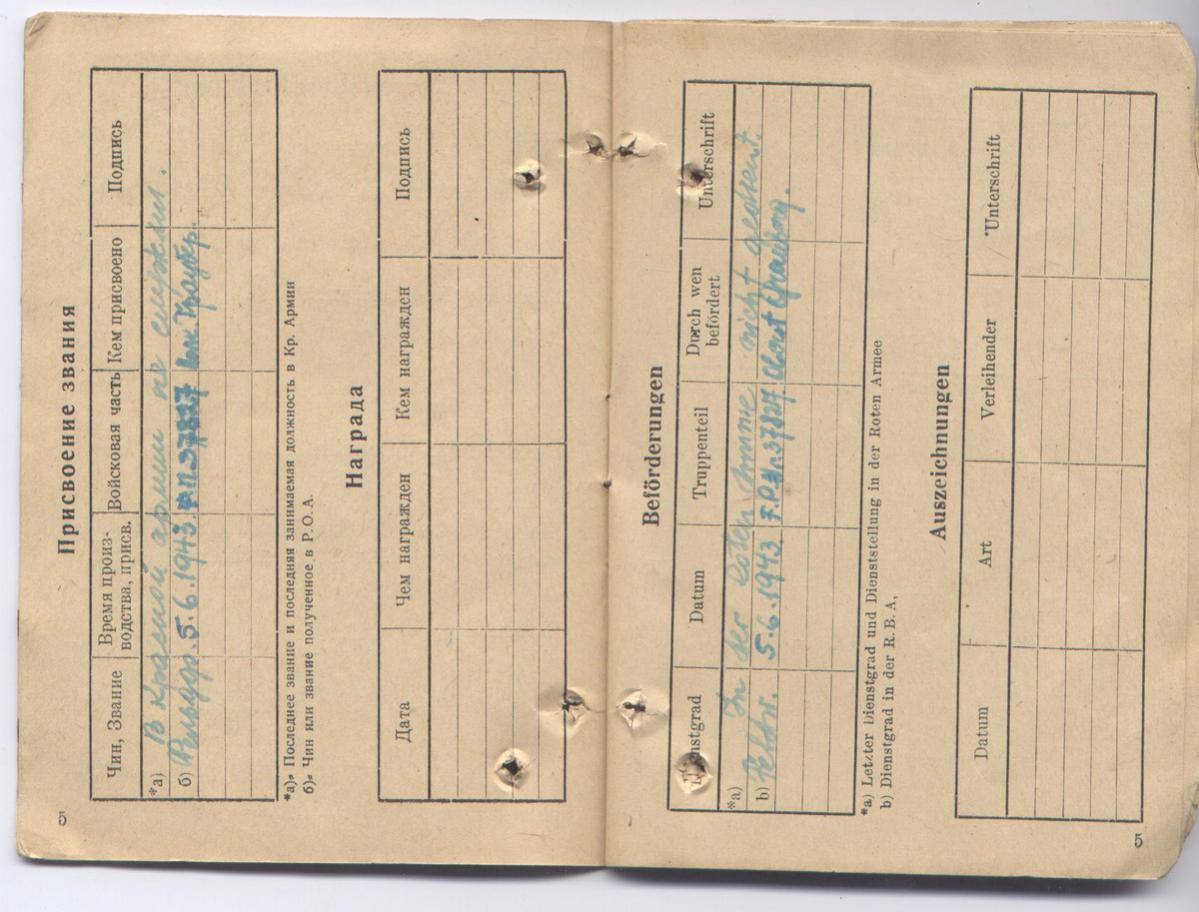 Присвоение звания
Чин, Звание Время произ-водства, присв. Войсковая часть Кем присвоено Подпись
*а) В красной армии не служил.
б) 5.6.1943. Ф.П.37827
*а) Последнее звание и последняя занимаемая должность в Кр. Армии
б) Чин или звание полученное в Р.О.А.
Награда
Дата Чем награжден Кем награжден Подпись
5
Beförderungen
Dienstgrad Datum Truppenteil Durch wen befördert Unterschrift
*a) In der roten Armee nicht gedient.
b) Rekr. 5.6.1943 F.P.Nr.37827
*a) Letzter Dienstgrad und Dienststellung in der Roten Armee
b) Dienstgrad in der R.B.A,
Auszeichnungen
Datum Art Verleihender Unterschrift
5